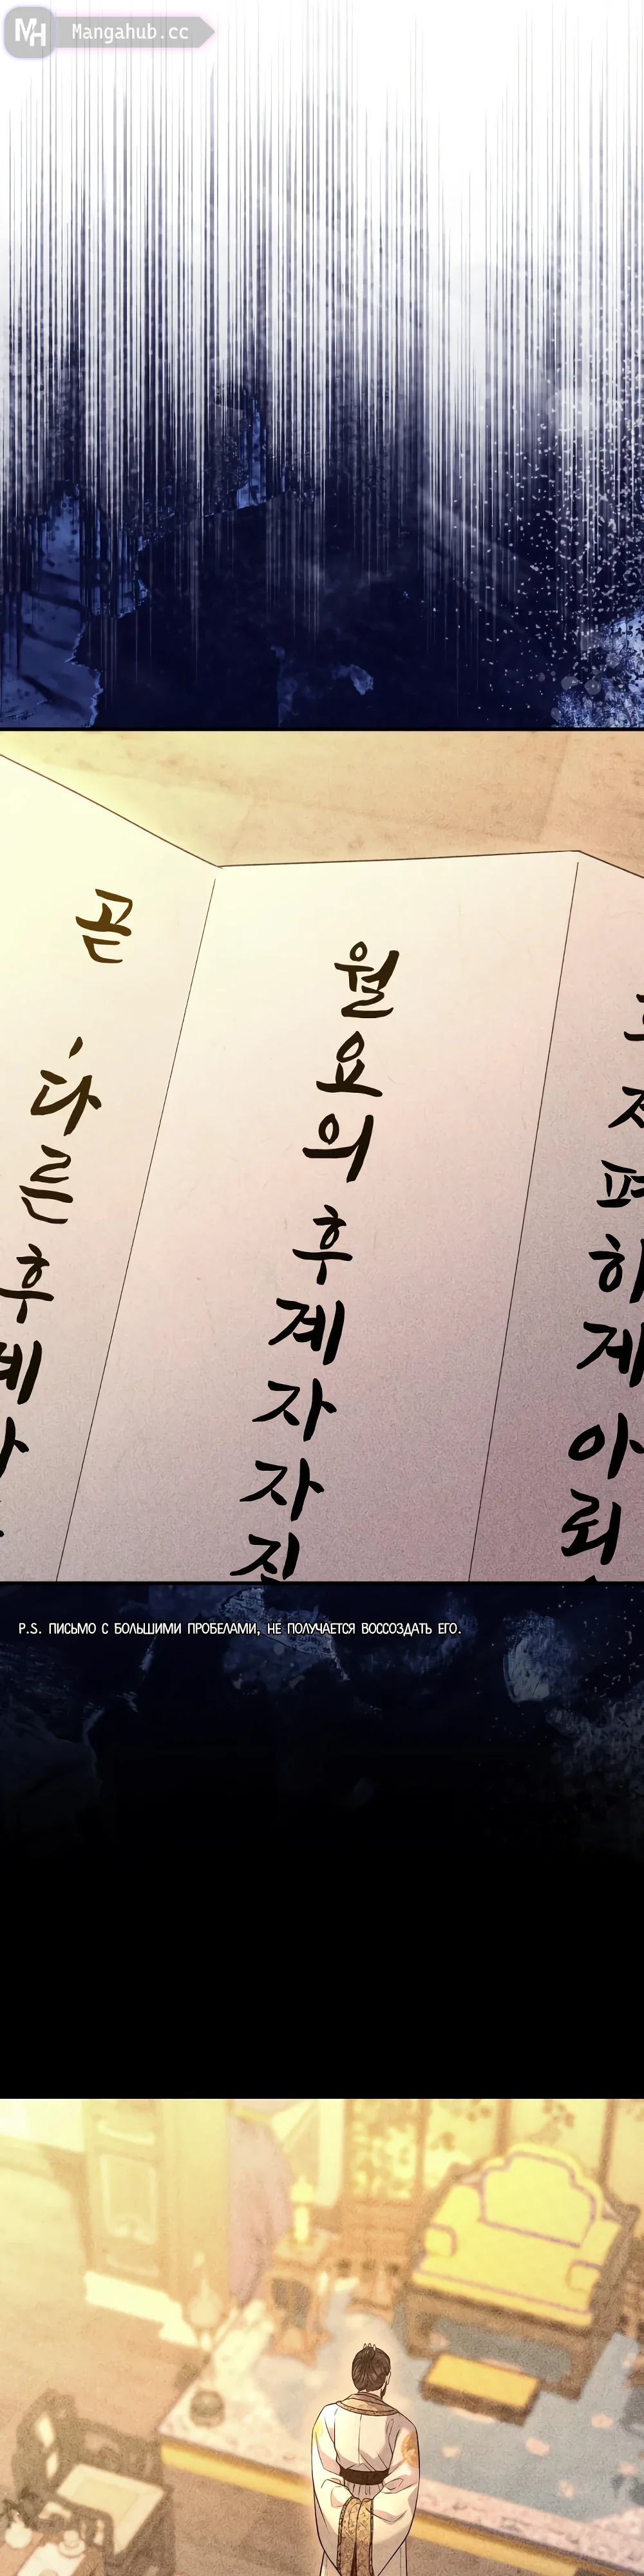 Mangahub.cc
하게 아뢰
월요의 후계자 자진
곧 다른 후계
P.S. ПИСЬМО С БОЛЬШИМИ ПРОБЕЛАМИ, НЕ ПОЛУЧАЕТСЯ ВОССОЗДАТЬ ЕГО.